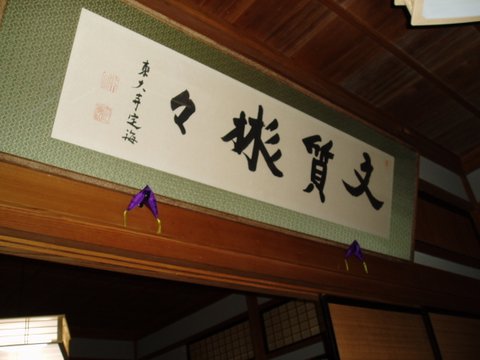 文質彬々
東大寺定海